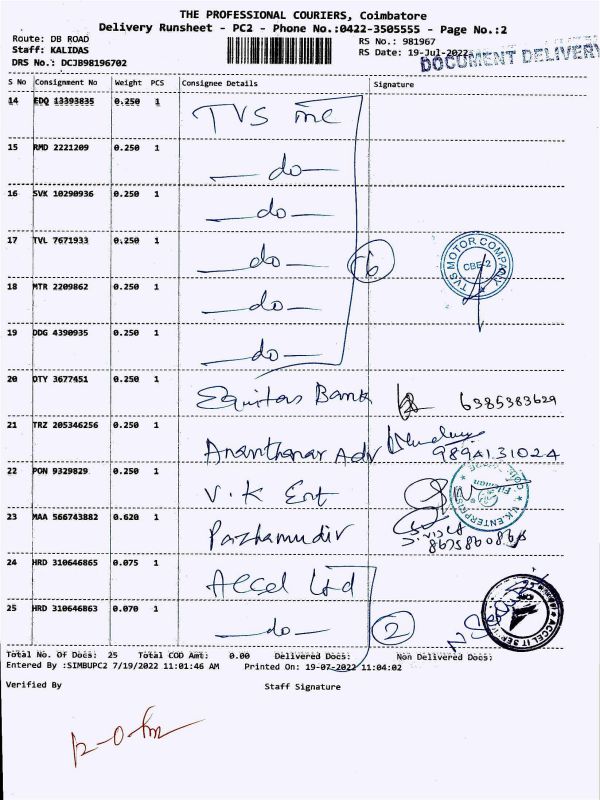 THE PROFESSIONAL COURIERS, Coimbatore
Delivery Runsheet - PC2 - Phone No.:0422-3505555 - Page No.:2
Route: DB ROAD
RS No.: 981967
Staff: KALIDAS
RS Date: 19-Jul-2022
DOCUMENT DELIVERY
DRS No.: DCJB98196702
S No Consignment No Weight PCS Consignee Details Signature
14 EDQ 13393835 0.250 1 TVS mc
15 RMD 2221209 0.250 1 —do—
16 SVK 10290936 0.250 1 —do—
17 TVL 7671933 0.250 1 —do— 6
TVS MOTOR COMPANY
CBE-2
18 MTR 2209862 0.250 1 —do—
19 DDG 4390935 0.250 1 —do—
20 DTY 3677451 0.250 1 Equitas Bank 6385383629
21 TRZ 205346256 0.250 1 Ananthanar Adv 9894131024
22 PON 9329829 0.250 1 V.K Ent
V.K.ENTERPRISES
23 MAA 566743882 0.620 1 Pazhamudir
24 HRD 310646865 0.075 1 Accel Ltd
25 HRD 310646863 0.070 1 —do— 2
ACCEL IT SER
Total No. Of Docs: 25 Total COD Amt: 0.00 Delivered Docs: Non Delivered Docs:
Entered By :SIMBUPC2 7/19/2022 11:01:46 AM Printed On: 19-07-2022 11:04:02
Verified By Staff Signature